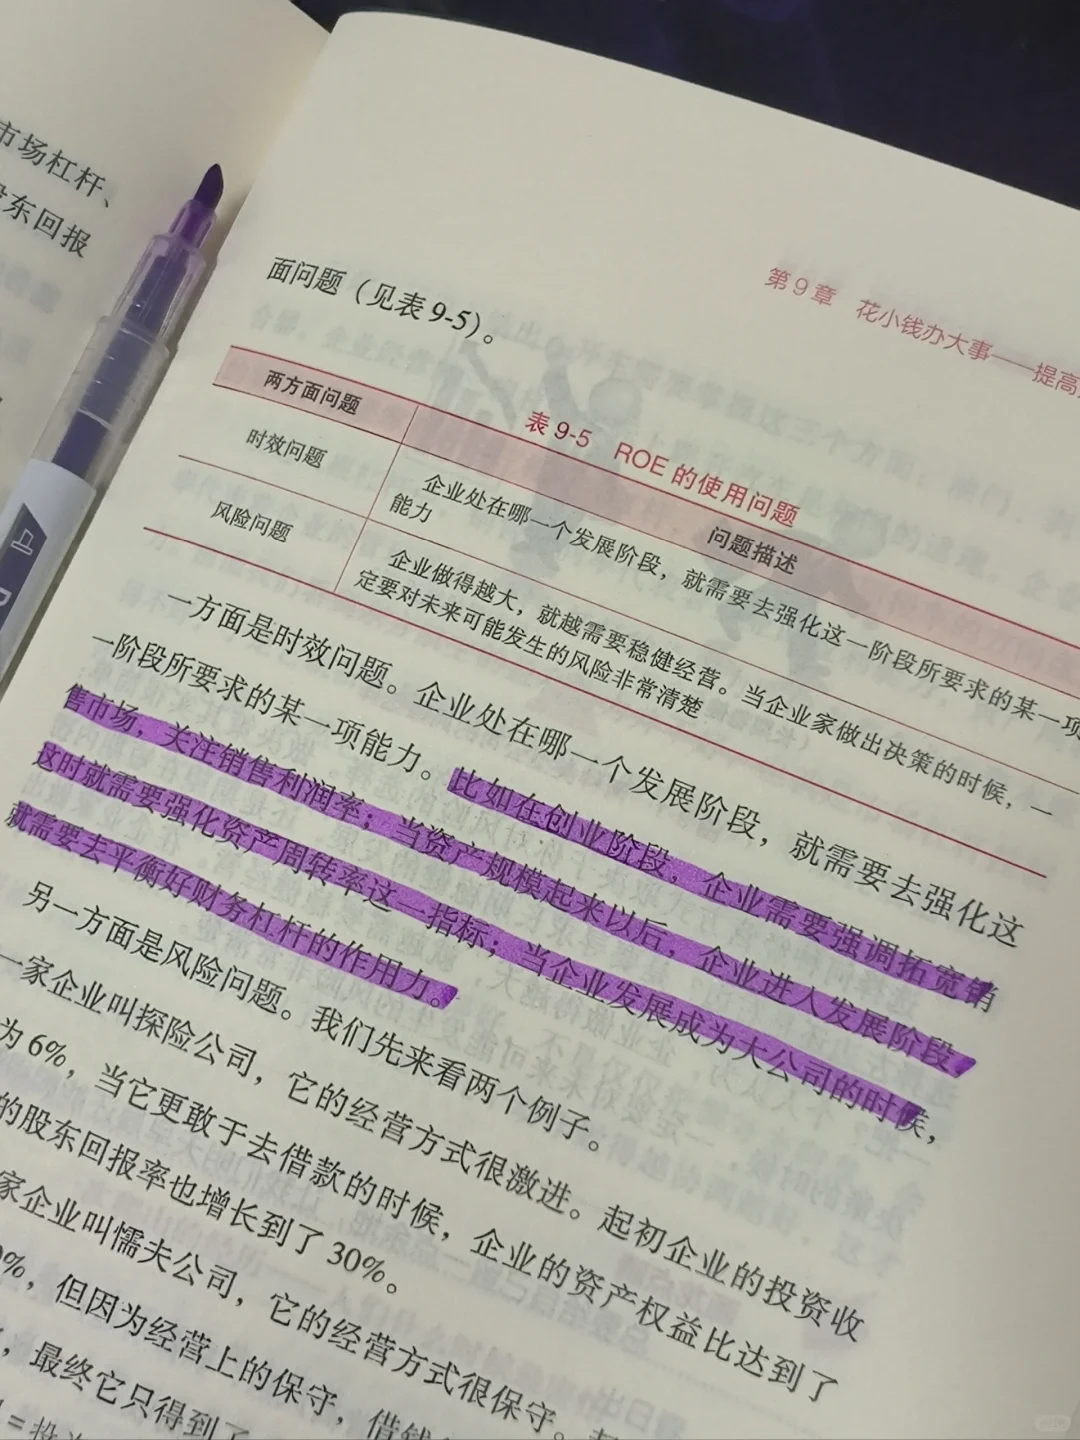 市场杠杆、
股东回报
第9章 花小钱办大事——提高
面问题（见表9-5）。
表9-5 ROE的使用问题
两方面问题
问题描述
时效问题
企业处在哪一个发展阶段，就需要去强化这一阶段所要求的某一项
能力
风险问题
企业做得越大，就越需要稳健经营。当企业家做出决策的时候，一
定要对未来可能发生的风险非常清楚
一方面是时效问题。企业处在哪一个发展阶段，就需要去强化这
一阶段所要求的某一项能力。比如在创业阶段，企业需要强调拓宽销
售市场，关注销售利润率；当资产规模起来以后，企业进入发展阶段，
这时就需要强化资产周转率这一指标；当企业发展成为大公司的时候，
就需要去平衡好财务杠杆的作用力。
另一方面是风险问题。我们先来看两个例子。
一家企业叫探险公司，它的经营方式很激进。起初企业的投资收
为6%，当它更敢于去借款的时候，企业的资产权益比达到了
的股东回报率也增长到了30%。
家企业叫懦夫公司，它的经营方式很保守。
0%，但因为经营上的保守，借钱
，最终它只得到了